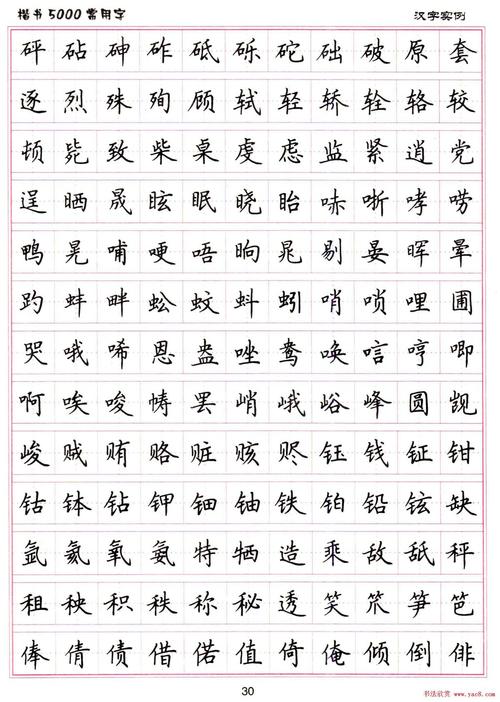 楷书5000常用字 汉字实例
砰 砧 砷 砟 砥 砾 砣 础 破 原 套
逐 烈 殊 殉 顾 轼 轻 轿 轾 辂 较
顿 毙 致 柴 桌 虔 虑 监 紧 逍 党
逞 晒 晟 眩 眠 晓 眙 哧 哳 哮 唠
鸭 晃 哺 哽 唔 晌 晁 剔 晏 晖 晕
趵 蚌 畔 蚣 蚊 蚪 蚓 哨 唢 哩 圃
哭 哦 唏 恩 盎 唑 鸯 唤 唁 哼 唧
啊 唉 唆 帱 罢 峭 峨 峪 峰 圆 觊
峻 贼 贿 赂 赃 赅 赆 钰 钱 钲 钳
钴 钵 钻 钾 钿 铀 铁 铂 铅 铉 缺
氩 氦 氧 氨 特 牺 造 乘 敌 舐 秤
租 秧 积 秩 称 秘 透 笑 笊 笋 笆
俸 倩 债 借 偌 值 倚 俺 倾 倒 俳
30
书法欣赏 www.yac8.com